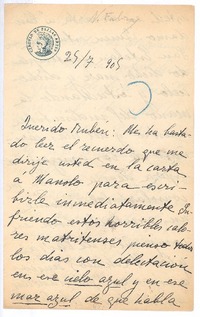 25/7 905
Querido Rubén: Me ha basta
do leer el recuerdo que me
dirije usted en la carta
á Manolo para escri
birle inmediatamente
friendo estos horribles calo
res matritenses pienso todos
los dias con delectacion
en ese cielo azul y en ese
mar azul de que habla